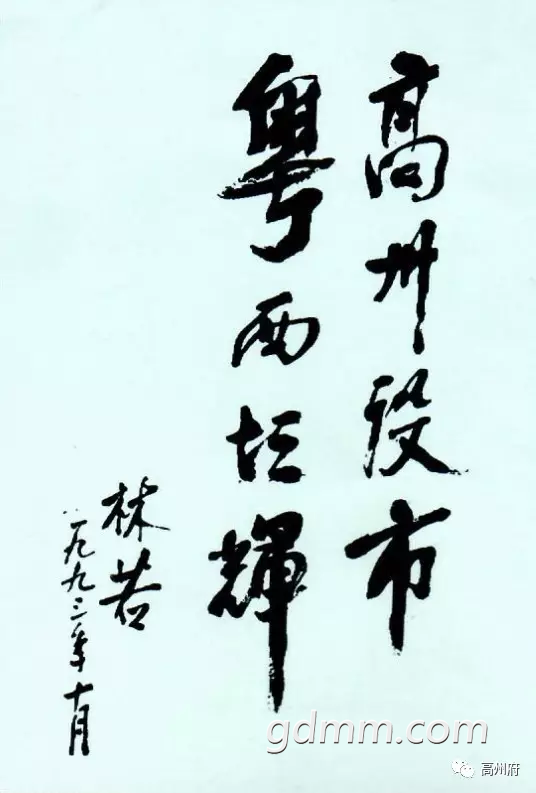 高州设市
粤西増輝
林若
一九九三年十月
gdmm.com
高州府